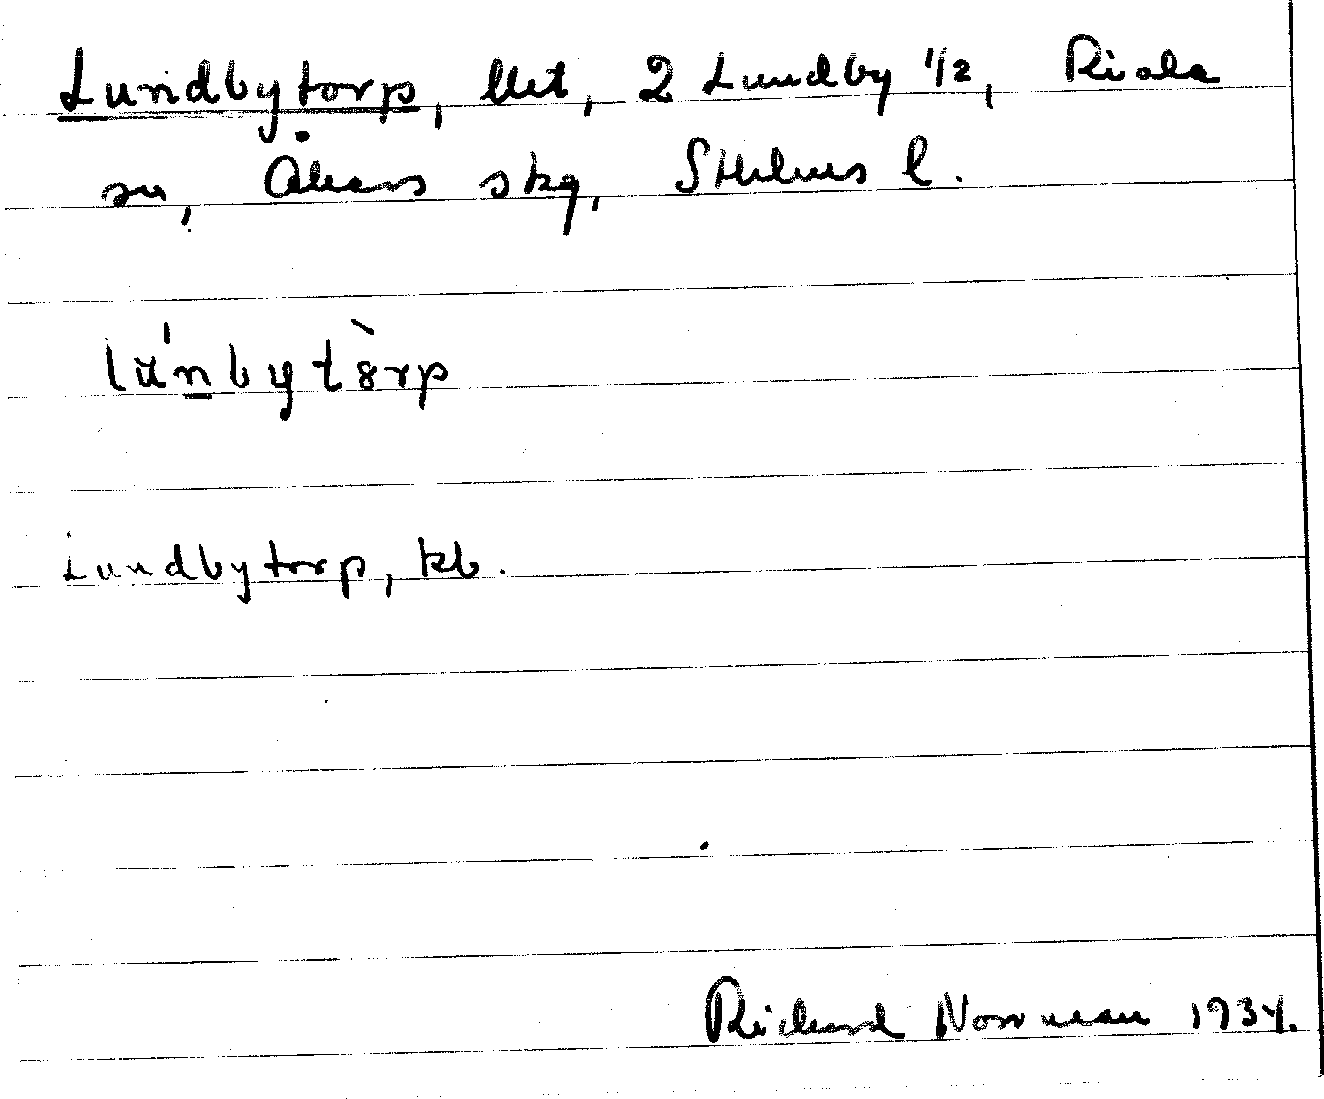 Lundbytorp, lht, 2 Lundby 1/2, Riala
sn, Åkers skg, Sthlms l.
lu'nbytòrp
Lundbytorp, kb.
Richard Norrman 1934.